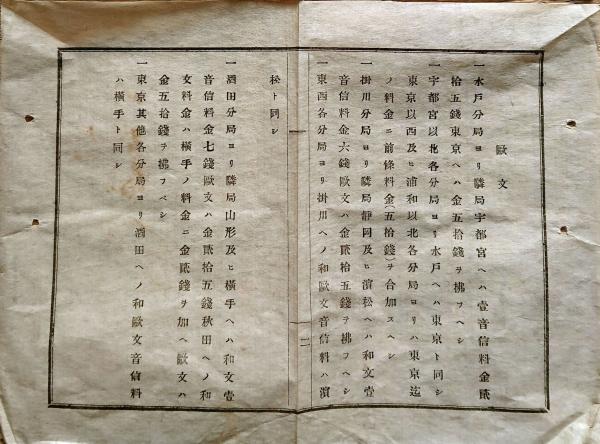 歐文
一水戸分局ヨリ隣局宇都宮ヘハ壹音信料金貳
拾五錢東京ヘハ金五拾錢ヲ拂フヘシ
一宇都宮以北各分局ヨリ水戸ヘハ東京ト同シ
東京以西及ヒ浦和以北各分局ヨリハ東京迄
ノ料金ニ前條料金(五拾錢)ヲ合加スヘシ
一掛川分局ヨリ隣局靜岡及ヒ濱松ヘハ和文壹
音信料金六錢歐文ハ金貳拾五錢ヲ拂フヘシ
一東西各分局ヨリ掛川ヘノ和歐文音信料ハ濱
二
松ト同シ
一酒田分局ヨリ隣局山形及ヒ橫手ヘハ和文壹
音信料金七錢歐文ハ金貳拾五錢秋田ヘノ和
文料金ハ橫手ノ料金ニ金貳錢ヲ加ヘ歐文ハ
金五拾錢ヲ拂フベシ
一東京其他各分局ヨリ酒田ヘノ和歐文音信料
ハ橫手ト同シ